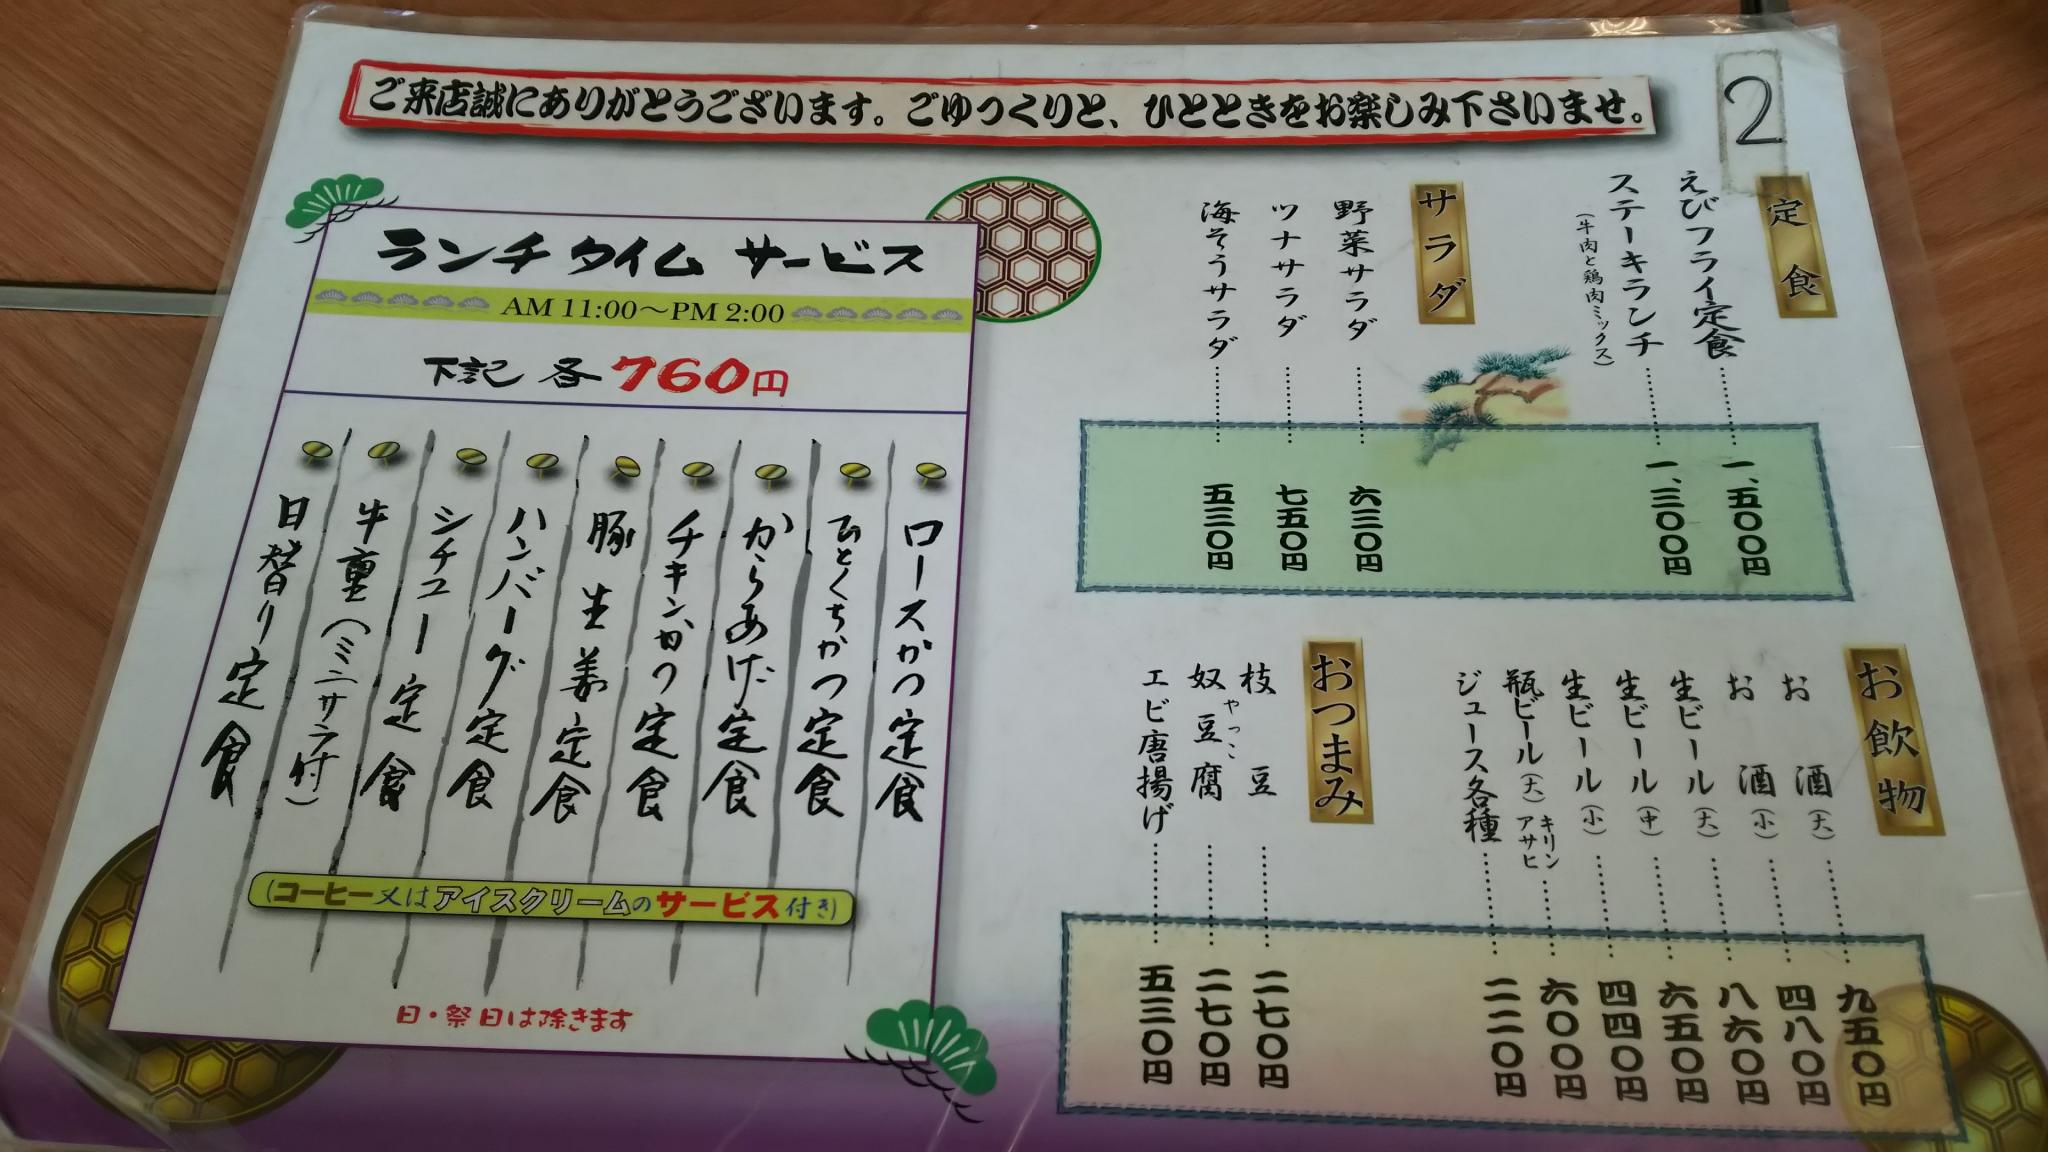 ご来店誠にありがとうございます。ごゆっくりと、ひとときをお楽しみ下さいませ。
2
ランチタイム サービス
AM 11:00～PM 2:00
下記 各760円
ロースかつ定食
ひとくちかつ定食
からあげ定食
チキンかつ定食
豚生姜定食
ハンバーグ定食
シチュー定食
牛重(ミニサラ付)
日替り定食
(コーヒー又はアイスクリームのサービス付き)
日・祭日は除きます
定食
えびフライ定食……一、五〇〇円
ステーキランチ……一、三〇〇円
(牛肉と鶏肉ミックス)
サラダ
野菜サラダ……六三〇円
ツナサラダ……七五〇円
海そうサラダ……五三〇円
お飲物
お酒(大)……九五〇円
お酒(小)……四八〇円
生ビール(大)……八六〇円
生ビール(中)……六五〇円
生ビール(小)……四四〇円
瓶ビール(大)キリン アサヒ……六〇〇円
ジュース各種……二二〇円
おつまみ
枝豆……二七〇円
奴豆腐……二七〇円
やっこ
エビ唐揚げ……五三〇円